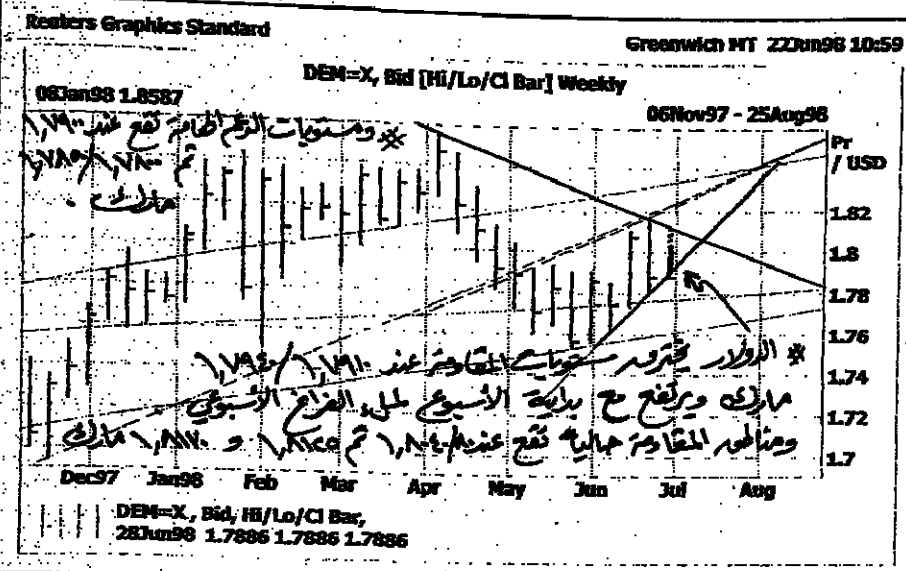 Reuters Graphics Standard
Greenwich MT 22Jun98 10:59
DEM=X, Bid [Hi/Lo/Cl Bar] Weekly
08Jan98 1.8587
06Nov97 - 25Aug98
* ومستويات الدعم الهامة تقع عند ١,٧٩٠٠
ثم ١,٧٨٠٠/١,٧٨٥٠
مارك .
Pr
/ USD
1.82
1.8
1.78
1.76
1.74
1.72
1.7
* الدولار يخترق مستويات المقاومة عند ١,٧٩١٠/١,٧٩٤٠
مارك ويرتفع مع بداية الأسبوع لملء الفراغ الأسبوعي
ومناطق المقاومة حالياً تقع عند ١,٨٠٤٠/٨٠ ثم ١,٨١٢٥ و ١,٨١٧٠ مارك
Dec97 Jan98 Feb Mar Apr May Jun Jul Aug
DEM=X , Bid, Hi/Lo/Cl Bar,
28Jun98 1.7886 1.7886 1.7886